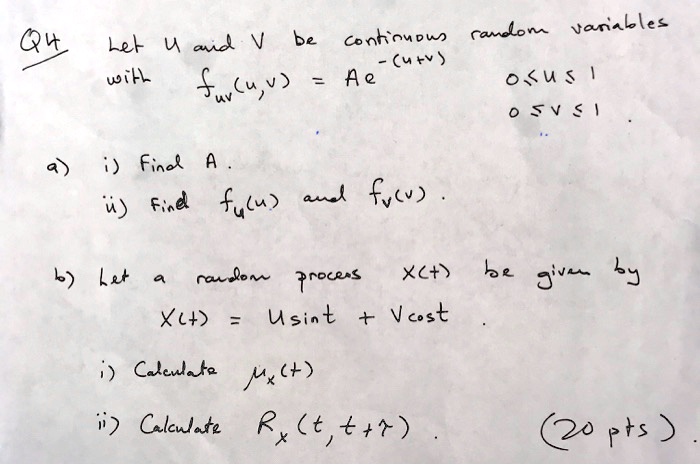 Q4 Let U and V be continuous random variables
with f_uv(u,v) = Ae^-(u+v) 0≤u≤1
0≤v≤1.
a) i) Find A.
ii) Find f_u(u) and f_v(v).
b) Let a random process X(t) be given by
X(t) = Usint + Vcost.
i) Calculate μ_x(t)
ii) Calculate R_x(t,t+τ). (20 pts).